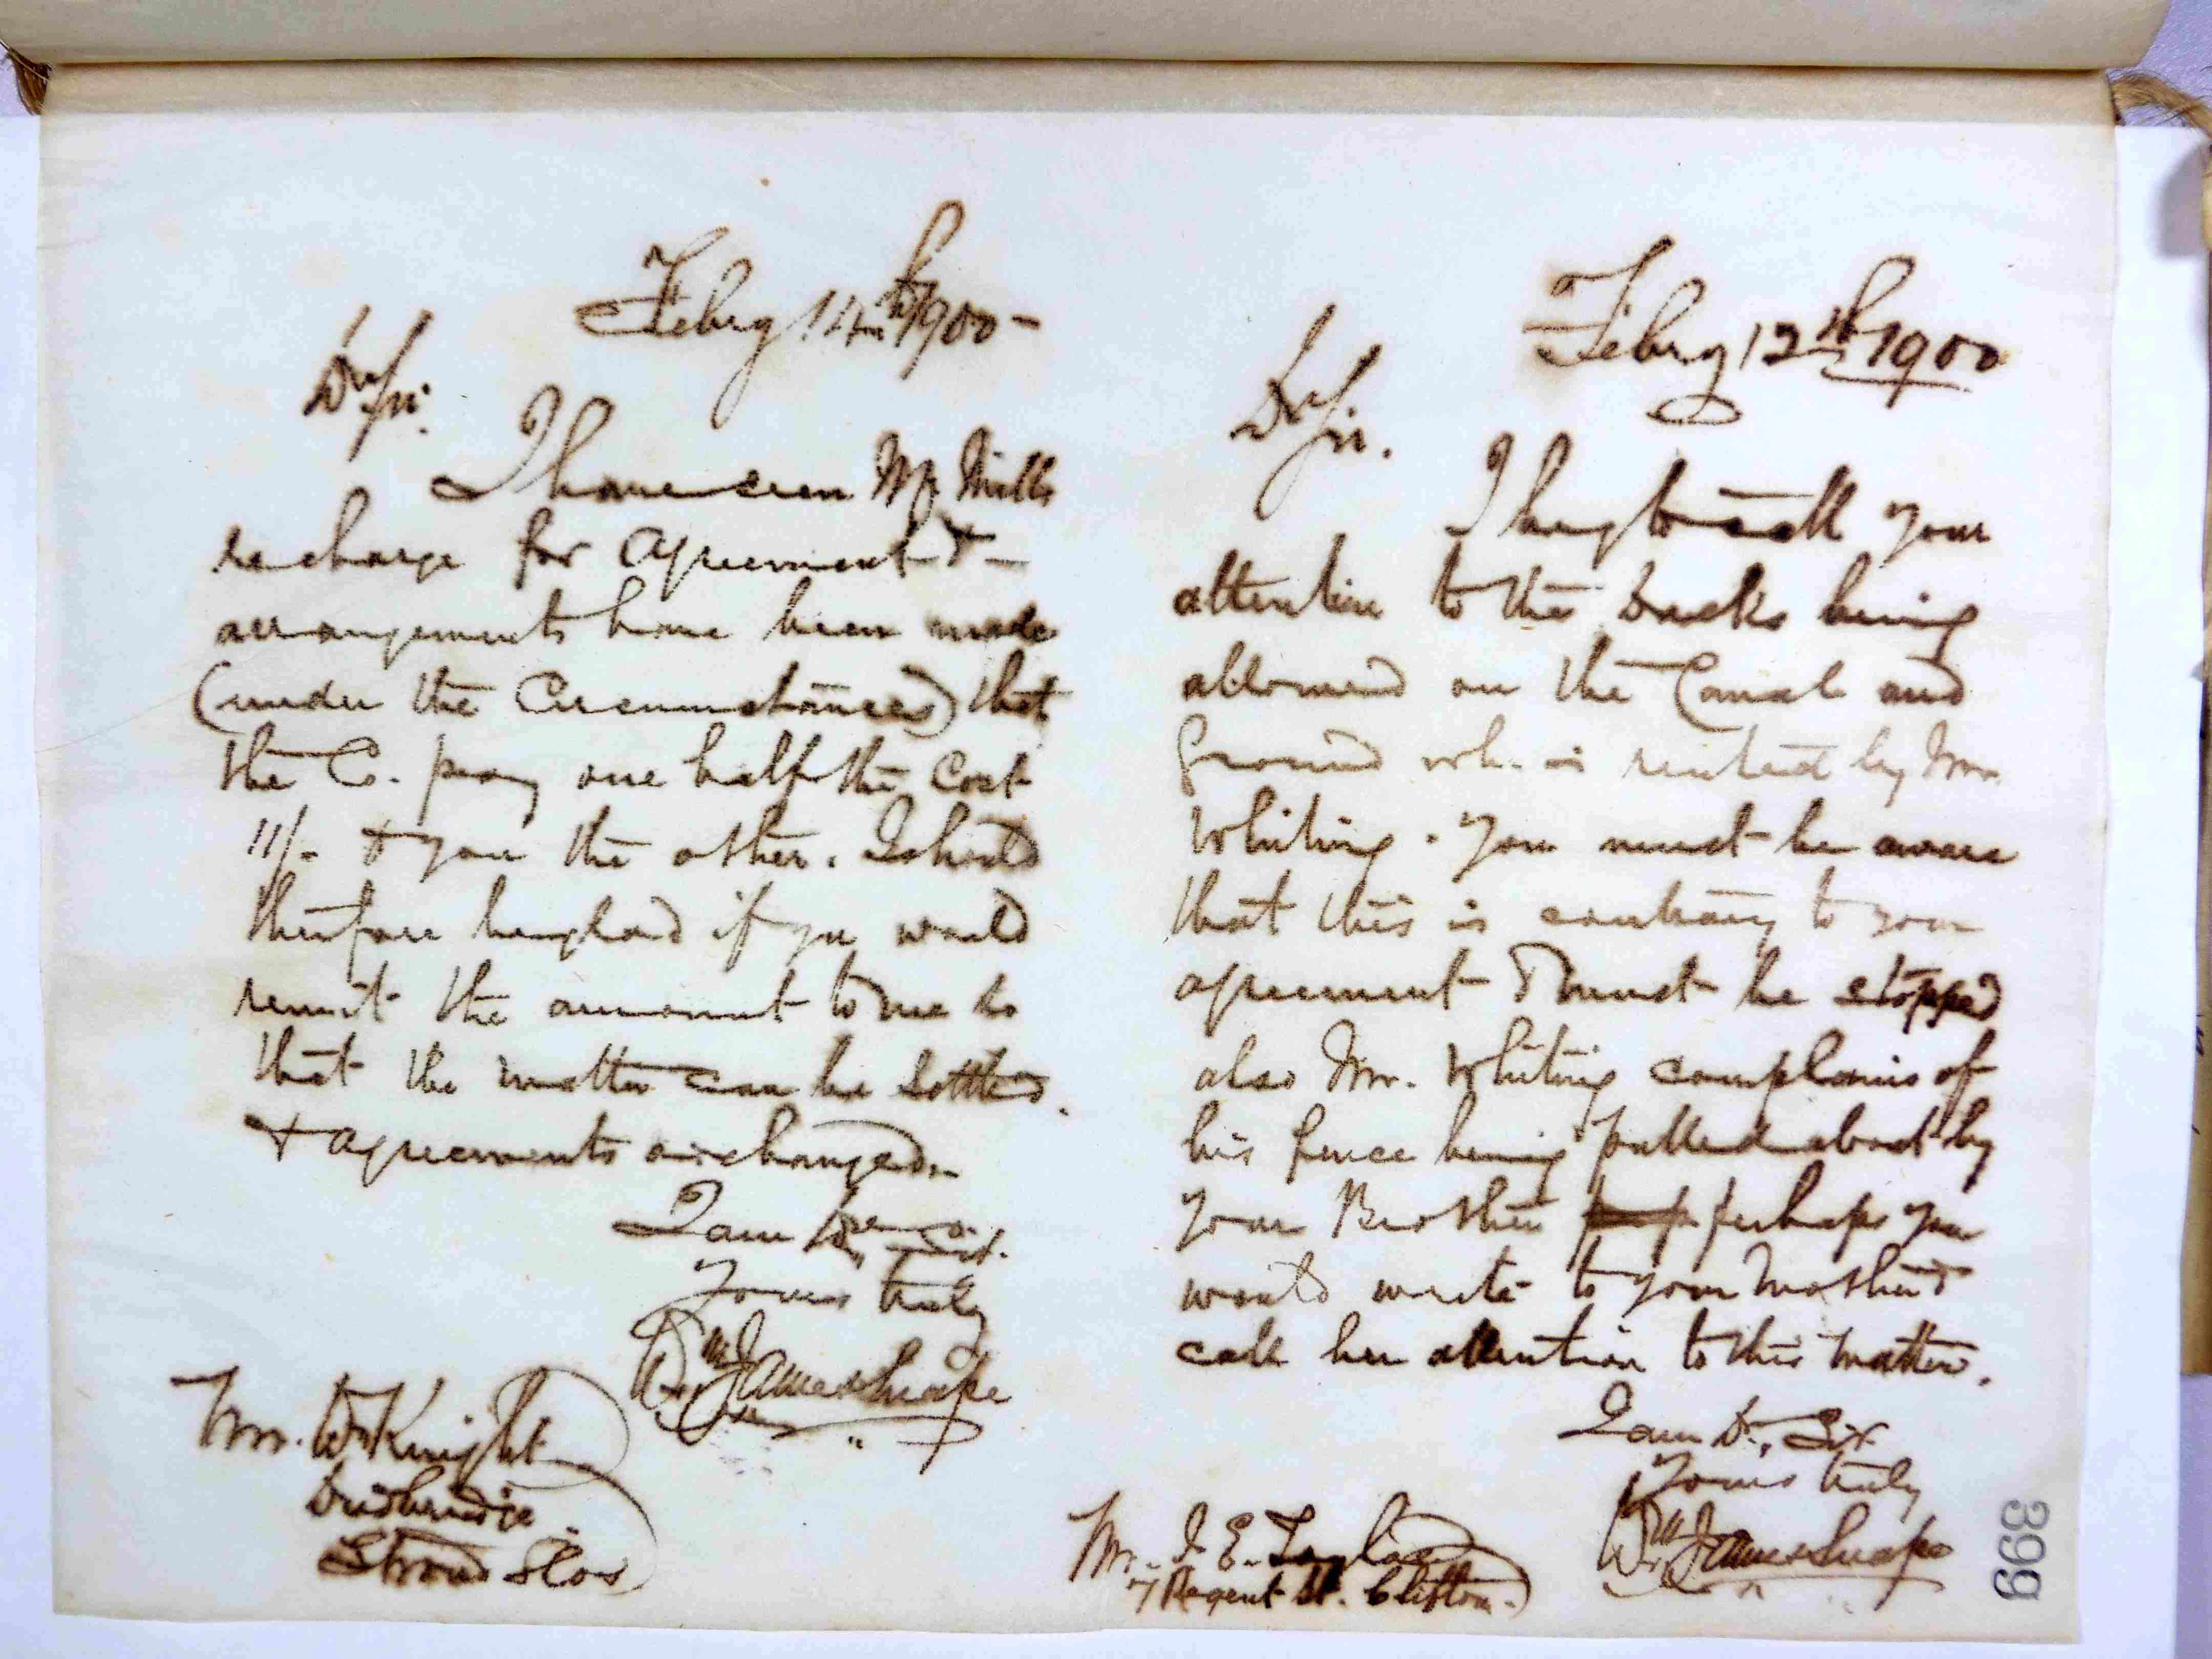 Febry 14th 1900 -
Dr Sir.
I have seen Mr. Mills
re charge for Agreement & -
arrangements have been made
(under the Circumstances) that
the Co. pay one half the Cost
11/- & you the other. I should
therefore be glad if you would
remit the amount to me so
that the matter can be settled.
& agreements exchanged.
I am Dr Sir.
Yours truly
Wm James Snape
Mr. W Knight
Dudbridge
Stroud Glos
Febry 12th 1900
Dr Sir.
I beg to call your
attention to the ducks being
allowed on the Canal and
ground wh. is rented by Mr.
Whiting. You must be aware
that this is contrary to your
agreement & must be stopped
also Mr. Whiting complains of
his fence being pulled about by
your Brother perhaps you
would write to your Mother &
call her attention to this matter.
I am Dr. Sir
Yours truly
Wm James Snape
Mr. J. E.
7 Regent St. Clifton.
399